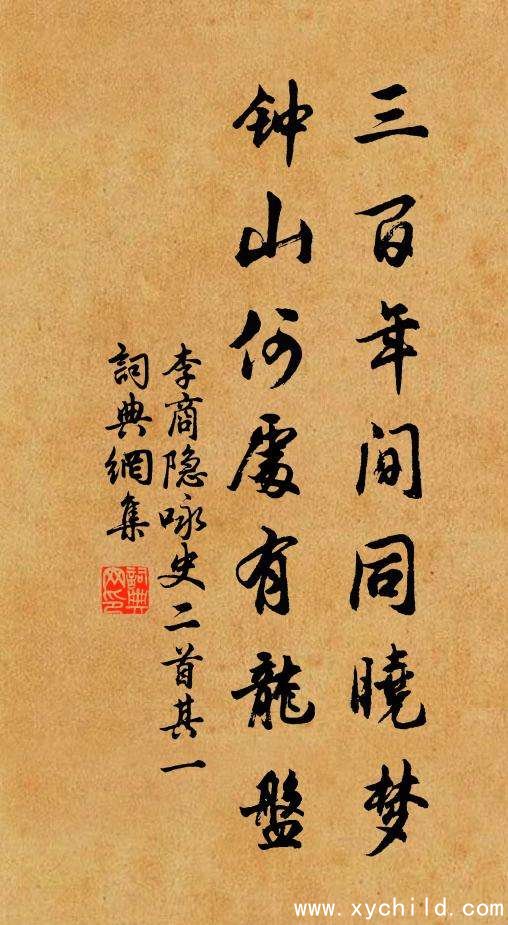 三百年间同曉梦
钟山何處有龍盤
李商隐咏史二首其一
詞典網集
詞典
网印
www.xychild.com